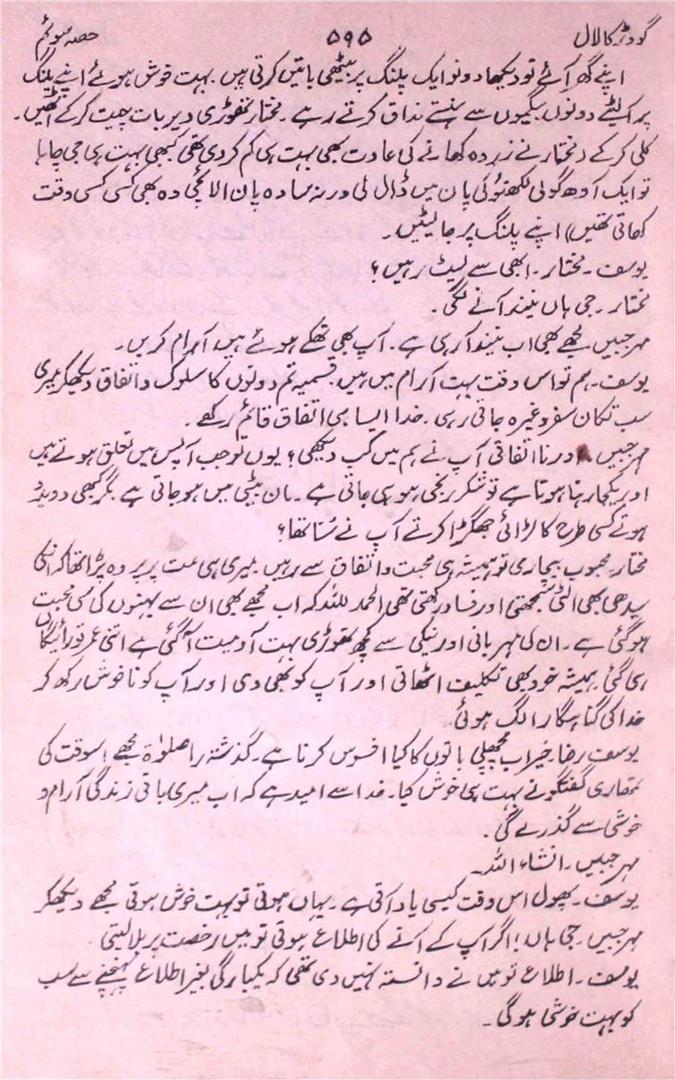 گودڑ کا لال ۵۹۵ حصہ سوئم
اپنے گھر آئے تو دیکھا دونو ایک پلنگ پر بیٹھی باتیں کرتی ہیں۔ بہت خوش ہوئے اپنے پلنگ
پر لیٹے دونوں بیگموں سے ہنستے مذاق کرتے رہے۔ مختار تھوڑی دیر بات چیت کر کے اٹھیں۔
کلی کر کے (مختار نے زردہ کھانے کی عادت بھی بہت ہی کم کر دی تھی کبھی بہت ہی جی چاہا
تو ایک آدھ گولی لکھنؤ کی پان میں ڈال لی ورنہ سادہ پان الائچی وہ بھی کسی کسی وقت
کھاتی تھیں) اپنے پلنگ پر جا لیٹیں۔
یوسف۔ مختار۔ ابھی سے لیٹ رہیں؟
مختار۔ جی ہاں نیند آنے لگی۔
مہر جبیں۔ مجھے بھی اب نیند آ رہی ہے۔ آپ بھی تھکے ہوئے ہیں آرام کریں۔
یوسف۔ ہم تو اس وقت بہت آرام میں ہیں قسمیہ تم دونوں کا سلوک و اتفاق دیکھکر میری
سب تکان سفر وغیرہ جاتی رہی۔ خدا ایسا ہی اتفاق قائم رکھے۔
مہر جبیں۔ اور نا اتفاقی آپ نے ہم میں کب دیکھی؟ یوں تو جب آپس میں تعلق ہوتے ہیں
اور یکجا رہنا ہوتا ہے تو شکر رنجی ہو ہی جاتی ہے۔ ماں بیٹی میں ہو جاتی ہے مگر کبھی دو بدو
ہوتے کسی طرح کا لڑائی جھگڑا کرتے آپ نے سنا تھا؟
مختار۔ محبوب بیچاری تو ہمیشہ ہی محبت و اتفاق سے رہیں میری ہی مت پر پردہ پڑا تھا کہ انکی
سیدھی بھی الٹی سمجھتی اور فساد رکھتی تھی الحمد للہ کہ اب مجھے بھی ان سے بہنوں کی سی محبت
ہو گئی ہے۔ ان کی مہربانی اور نیکی سے کچھ تھوڑی بہت آدمیت آ گئی ہے اتنی عمر تو رائیگاں
ہی گئی ہمیشہ خود بھی تکلیف اٹھاتی اور آپ کو بھی دی اور آپ کو ناخوش رکھ کر
خدا کی گناہگار الگ ہوئی۔
یوسف رضا۔ خیر اب پچھلی باتوں کا کیا افسوس کرنا ہے۔ گذشتہ را صلوٰۃ مجھے اسوقت کی
تمھاری گفتگو نے بہت ہی خوش کیا۔ خدا سے امید ہے کہ اب میری باقی زندگی آرام و
خوشی سے گذرے گی۔
مہر جبیں۔ انشاء اللہ۔
یوسف۔ پھول اس وقت کیسی یاد آتی ہے۔ یہاں ہوتی تو بہت خوش ہوتی مجھے دیکھکر
مہر جبیں۔ جی ہاں! اگر آپ کے آنے کی اطلاع ہوتی تو میں رخصت پر بلا لیتی۔
یوسف۔ اطلاع تو میں نے دانستہ نہیں دی تھی کہ یکبارگی بغیر اطلاع پہنچنے سے سب
کو بہت خوشی ہو گی۔